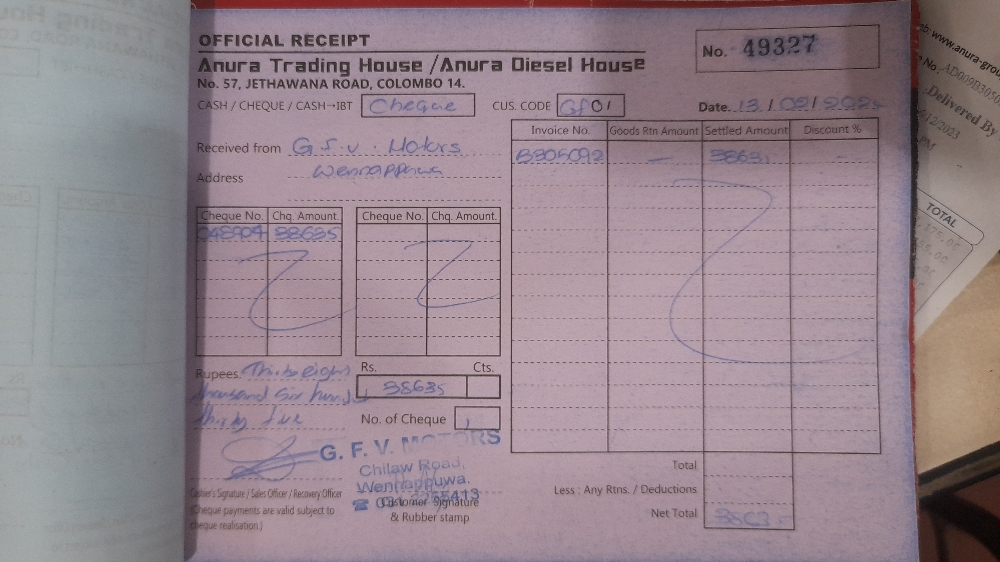 OFFICIAL RECEIPT
Anura Trading House / Anura Diesel House
No. 57, JETHAWANA ROAD, COLOMBO 14.
No. 49327
CASH / CHEQUE / CASH→IBT Cheque
CUS. CODE GF01
Date. 13 / 02 / 2025
Received from G.F.V. Motors
Address Wennappuwa
Cheque No. Chq. Amount. Cheque No. Chq. Amount.
048904 38635
Invoice No. Goods Rtn Amount Settled Amount Discount %
B305092 — 38635 -
Rupees. Thirty eight
thousand six hund
thirty five
Rs. Cts.
38635
No. of Cheque 1
G. F. V. MOTORS
Chilaw Road,
Wennappuwa.
Cashier's Signature / Sales Officer / Recovery Officer
(Cheque payments are valid subject to
cheque realisation.)
Customer Signature
& Rubber stamp
Total
Less : Any Rtns. / Deductions
Net Total 38635
www.anura-grou
No. AD009B3050
Delivered By
/12/2023
PM
TOTAL